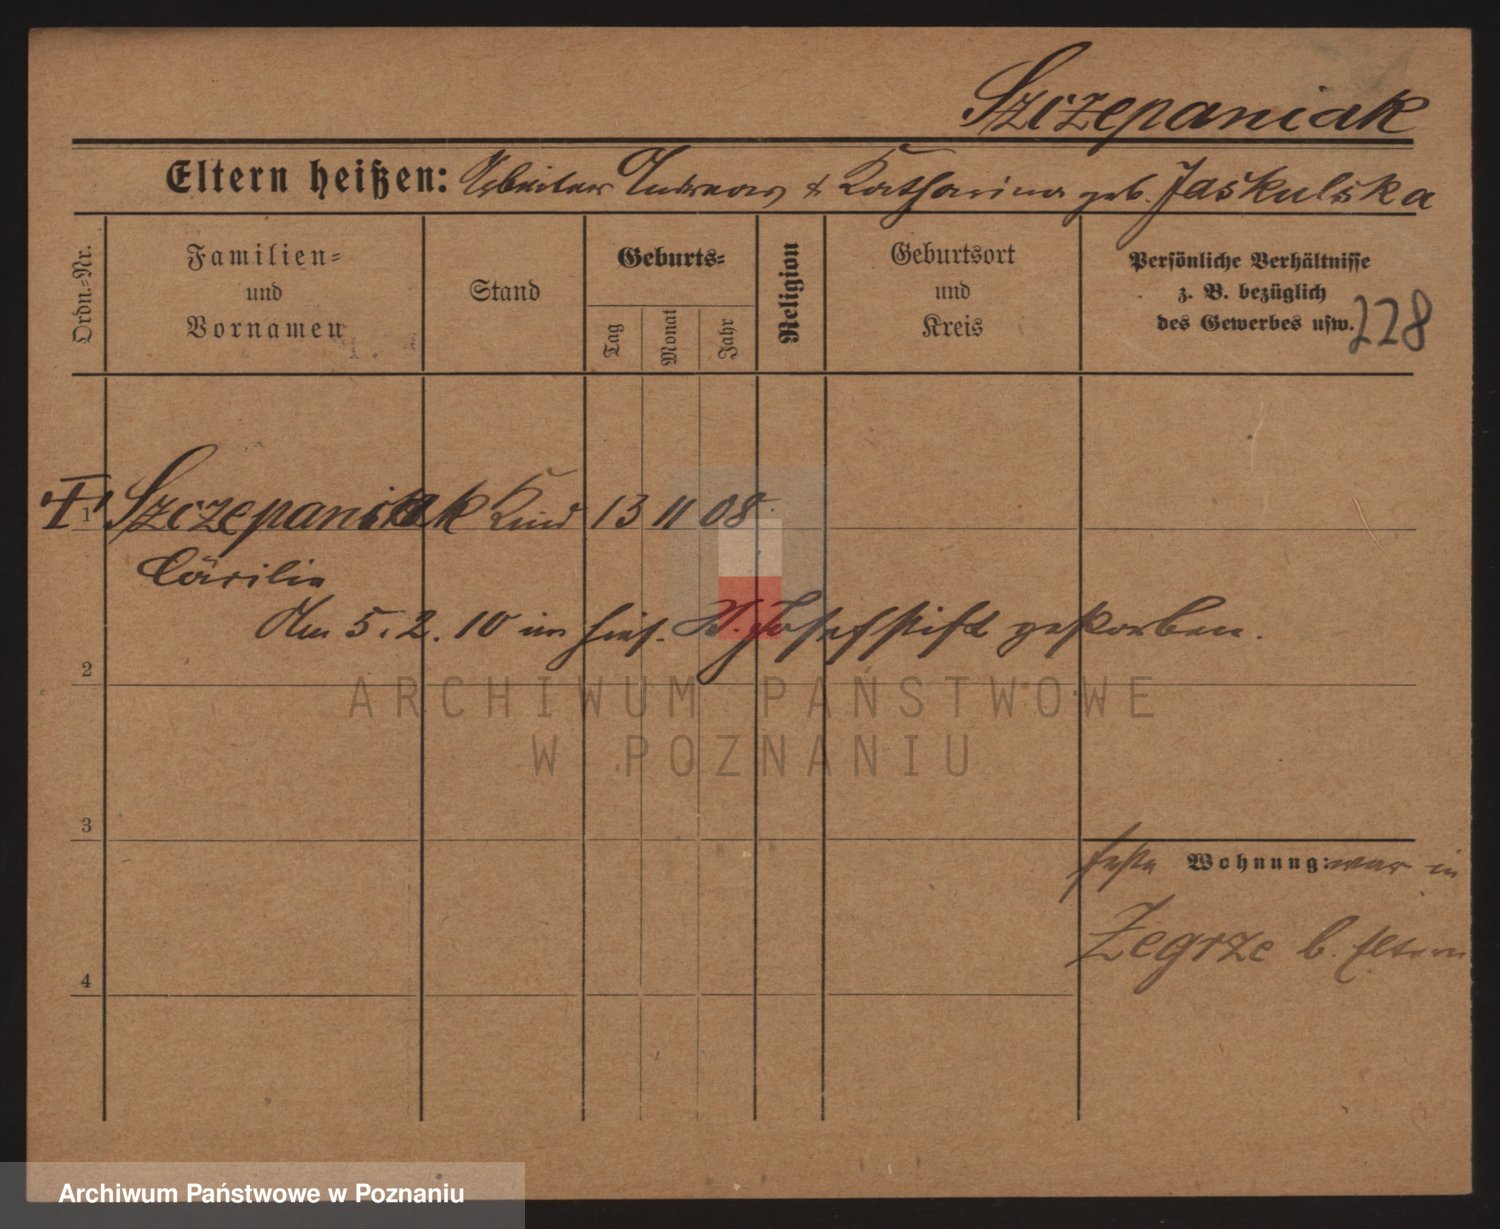 Szczepaniak
Eltern heißen: Arbeiter Andreas & Katharina geb. Jaskulska
Ordn.-Nr.
Familien-
und
Vornamen
Stand
Geburts-
Tag
Monat
Jahr
Religion
Geburtsort
und
Kreis
Persönliche Verhältnisse
z. B. bezüglich
des Gewerbes usw.
228
1 Szczepaniak Kind 13 11 08
Cäcilie
Am 5. 2. 10 im hies. St. Josefstift gestorben.
2
ARCHIWUM PAŃSTWOWE
W POZNANIU
3
Wohnung: war in
Zegrze b. Eltern
4
Archiwum Państwowe w Poznaniu